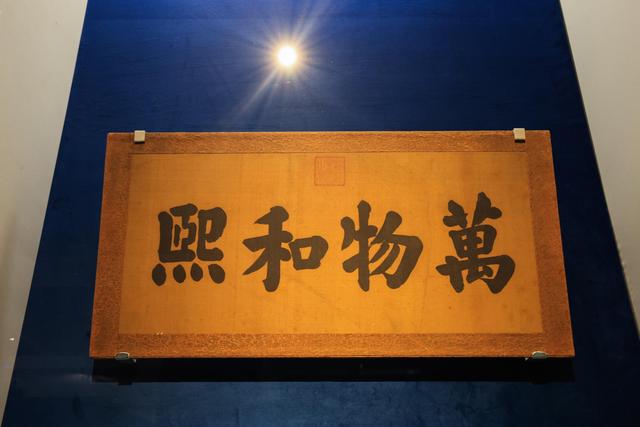 萬物和熙